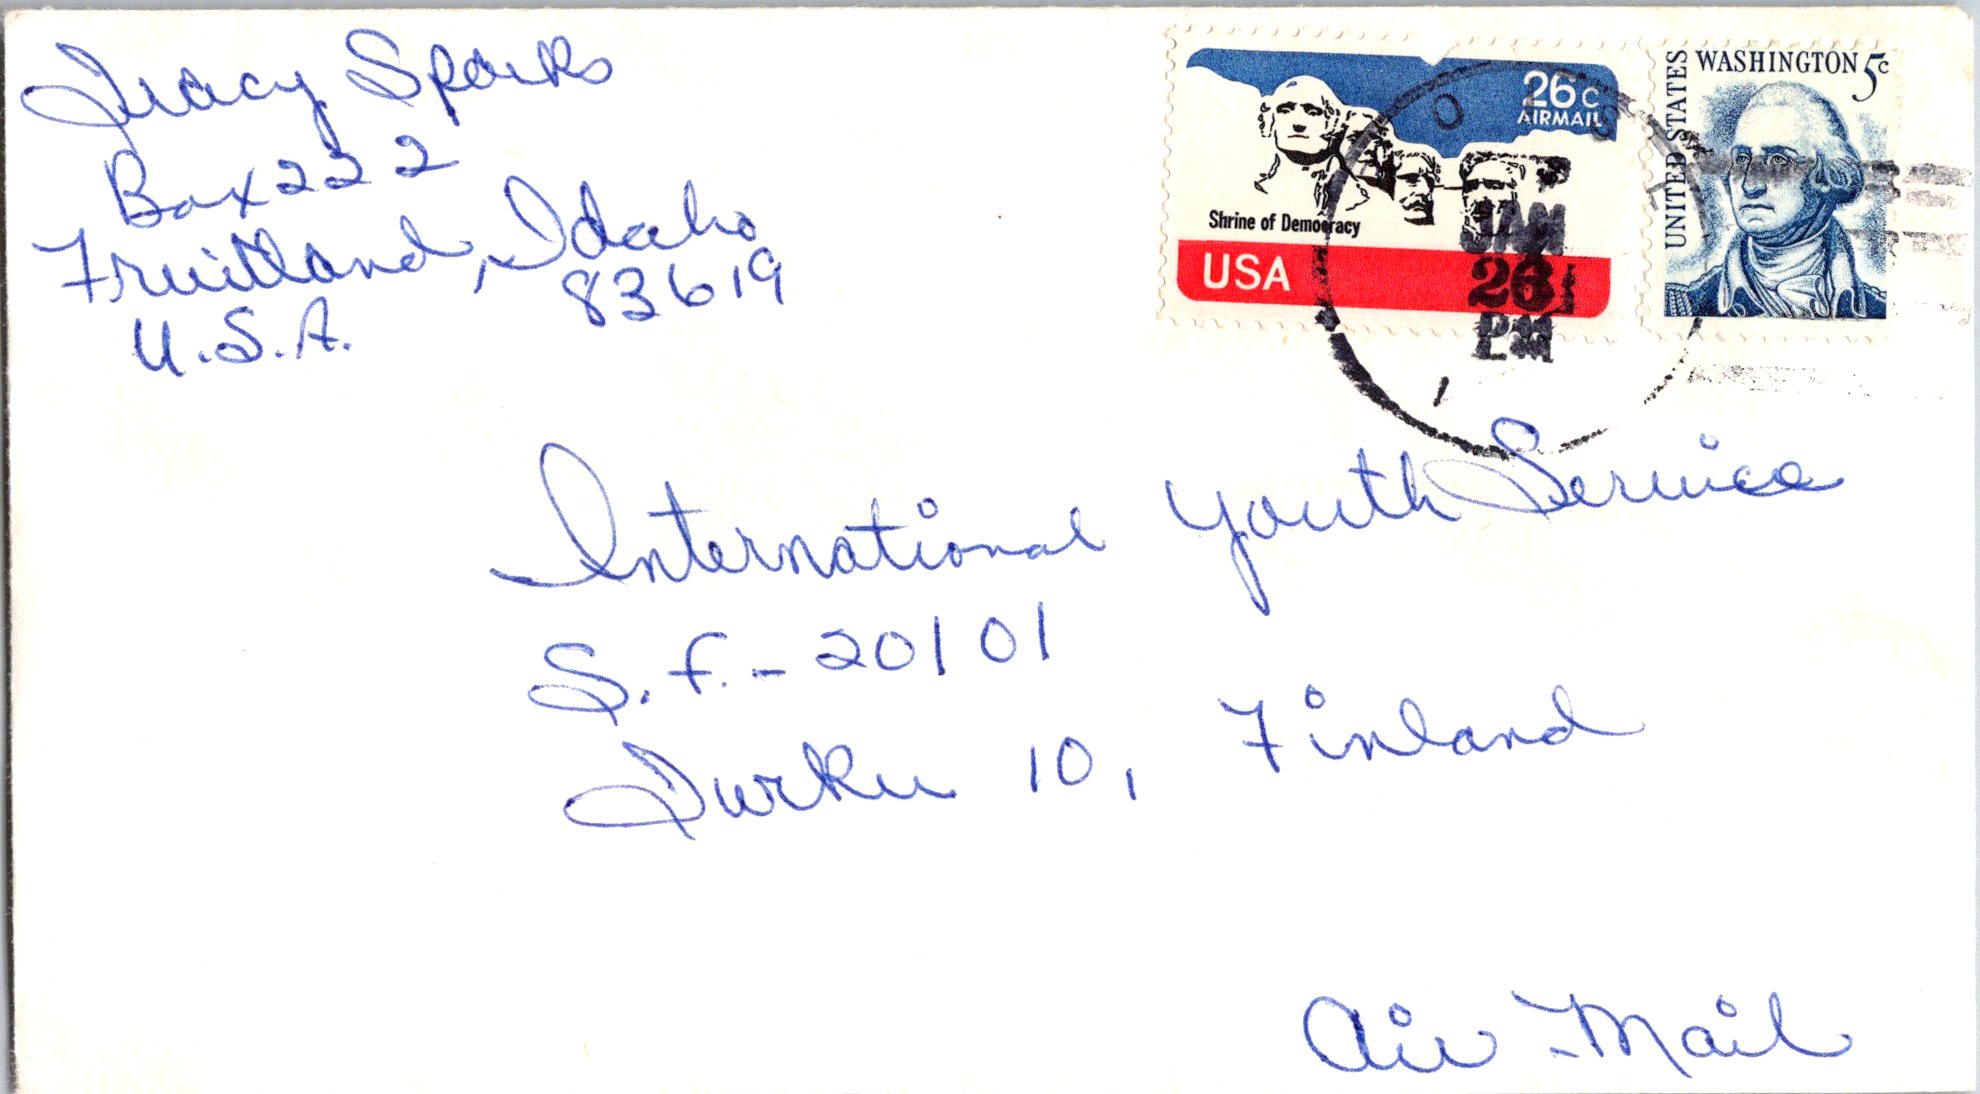 Tracy Sparks
Box 222
Fruitland, Idaho
83619
U.S.A.
26c
AIRMAIL
Shrine of Democracy
USA
UNITED STATES
WASHINGTON 5c
JAN
26
PM
International Youth Service
S.F.-20101
Turku 10, Finland
Air Mail